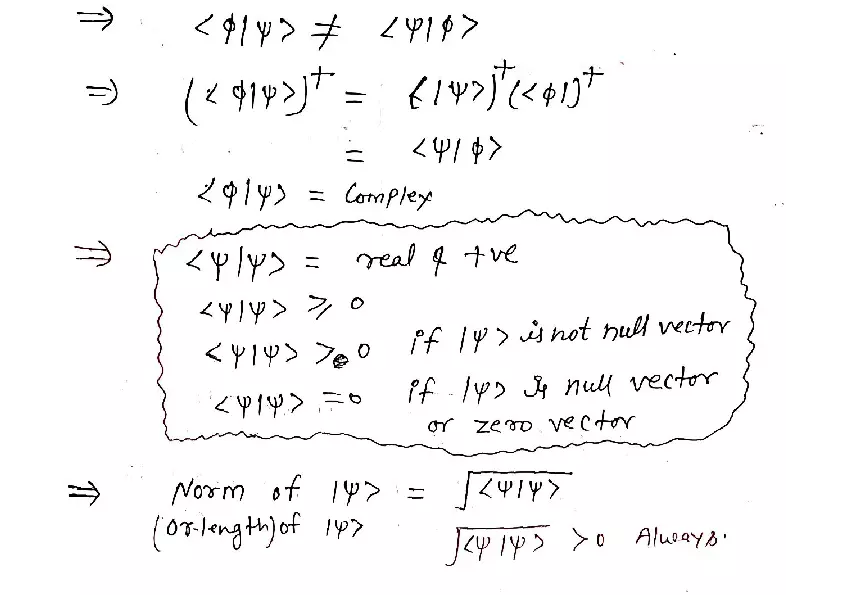 ⇒ <ϕ|ψ> ≠ <ψ|ϕ>
⇒ (<ϕ|ψ>)† = (|ψ>)†(<ϕ|)†
= <ψ|ϕ>
<ϕ|ψ> = Complex
⇒ <ψ|ψ> = real & +ve
<ψ|ψ> ≥ 0
<ψ|ψ> > 0 if |ψ> is not null vector
<ψ|ψ> = 0 if |ψ> is null vector
or zero vector
⇒ Norm of |ψ> = √<ψ|ψ>
(or length) of |ψ>
√<ψ|ψ> > 0 Always.